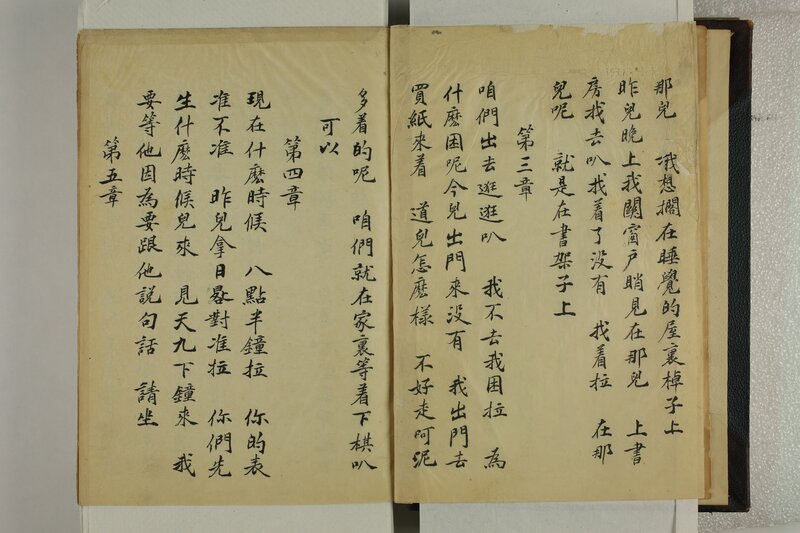 那兒　我想擱在睡覺的屋裏棹子上
昨兒晚上我關窗戶䀩見在那兒　上書
房找去叭找着了没有　找着拉　在那
兒呢　就是在書架子上
第三章
咱們出去逛逛叭　我不去我困拉　為
什麽困呢今兒出門来没有　我出門去
買紙来着　道兒怎麽樣　不好走呵泥
多着的呢　咱們就在家裏等着下棋叭
可以
第四章
現在什麽時候　八點半鐘拉　你的表
准不准　昨兒拿日晷對准拉　你們先
生什麽時候兒來　見天九下鐘来　我
要等他因為要跟他説句話　請坐
第五章